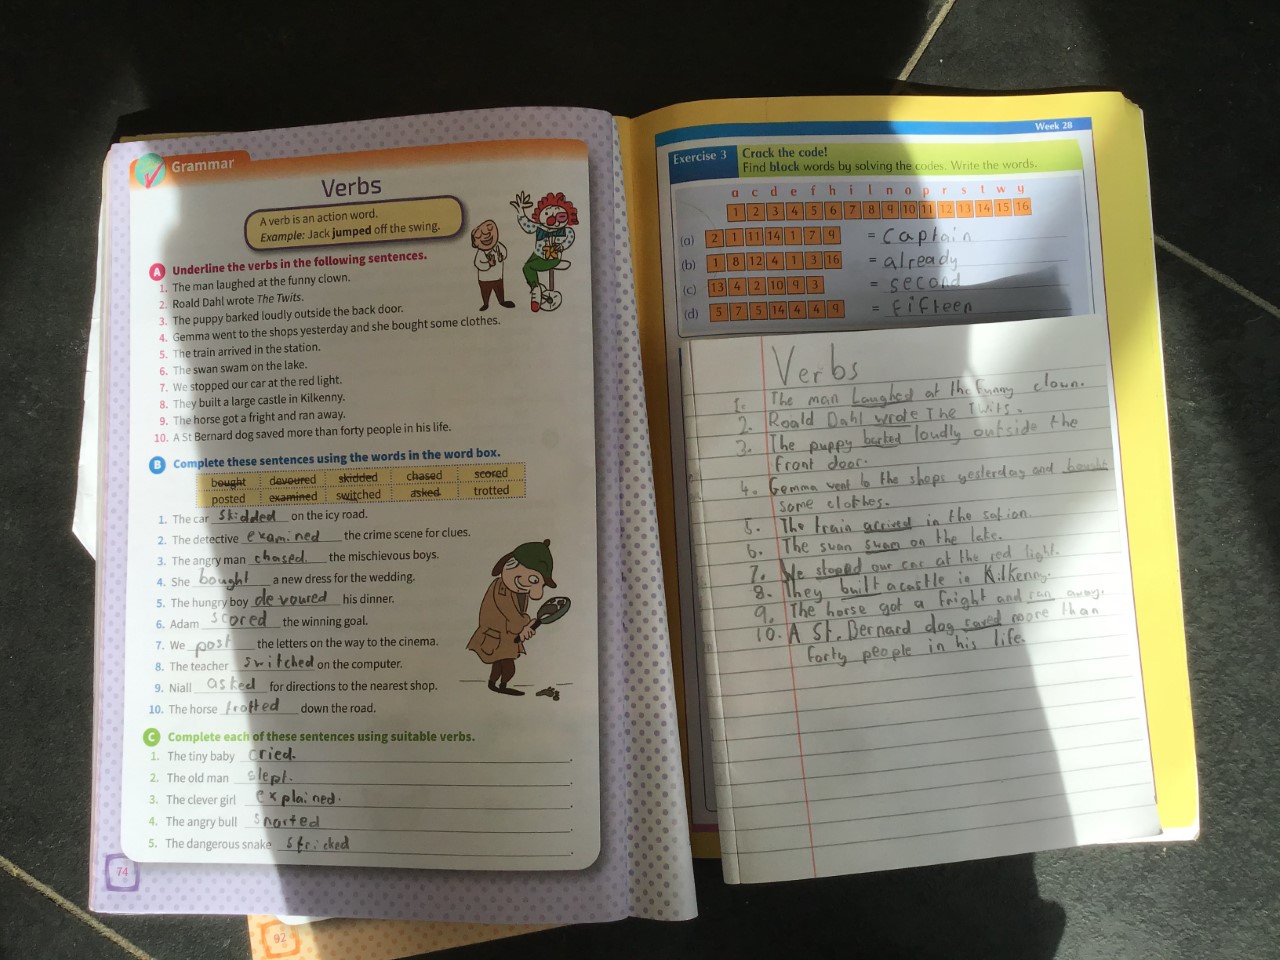 Grammar
Verbs
A verb is an action word.
Example: Jack jumped off the swing.
A Underline the verbs in the following sentences.
1. The man laughed at the funny clown.
2. Roald Dahl wrote The Twits.
3. The puppy barked loudly outside the back door.
4. Gemma went to the shops yesterday and she bought some clothes.
5. The train arrived in the station.
6. The swan swam on the lake.
7. We stopped our car at the red light.
8. They built a large castle in Kilkenny.
9. The horse got a fright and ran away.
10. A St Bernard dog saved more than forty people in his life.
B Complete these sentences using the words in the word box.
bought devoured skidded chased scored
posted examined switched asked trotted
1. The car skidded on the icy road.
2. The detective examined the crime scene for clues.
3. The angry man chased the mischievous boys.
4. She bought a new dress for the wedding.
5. The hungry boy devoured his dinner.
6. Adam scored the winning goal.
7. We post the letters on the way to the cinema.
8. The teacher switched on the computer.
9. Niall asked for directions to the nearest shop.
10. The horse trotted down the road.
C Complete each of these sentences using suitable verbs.
1. The tiny baby cried.
2. The old man slept.
3. The clever girl explained.
4. The angry bull snorted
5. The dangerous snake stricked
74
92
Week 28
Exercise 3 Crack the code!
Find block words by solving the codes. Write the words.
a c d e f h i l n o p r s t w y
1 2 3 4 5 6 7 8 9 10 11 12 13 14 15 16
(a) 2 1 11 14 1 7 9 = captain
(b) 1 8 12 4 1 3 16 = already
(c) 13 4 2 10 9 3 = second
(d) 5 7 5 14 4 4 9 = fifteen
Verbs
1. The man Laughed at the funny clown.
2. Roald Dahl wrote The Twits.
3. The puppy barked loudly outside the
front door.
4. Gemma went to the shops yesterday and bought
some clothes.
5. The train arrived in the sation.
6. The swan swam on the lake.
7. We stoped our car at the red light.
8. They built a castle in Kilkenny.
9. The horse got a fright and ran away.
10. A St. Bernard dog saved more than
forty people in his life.